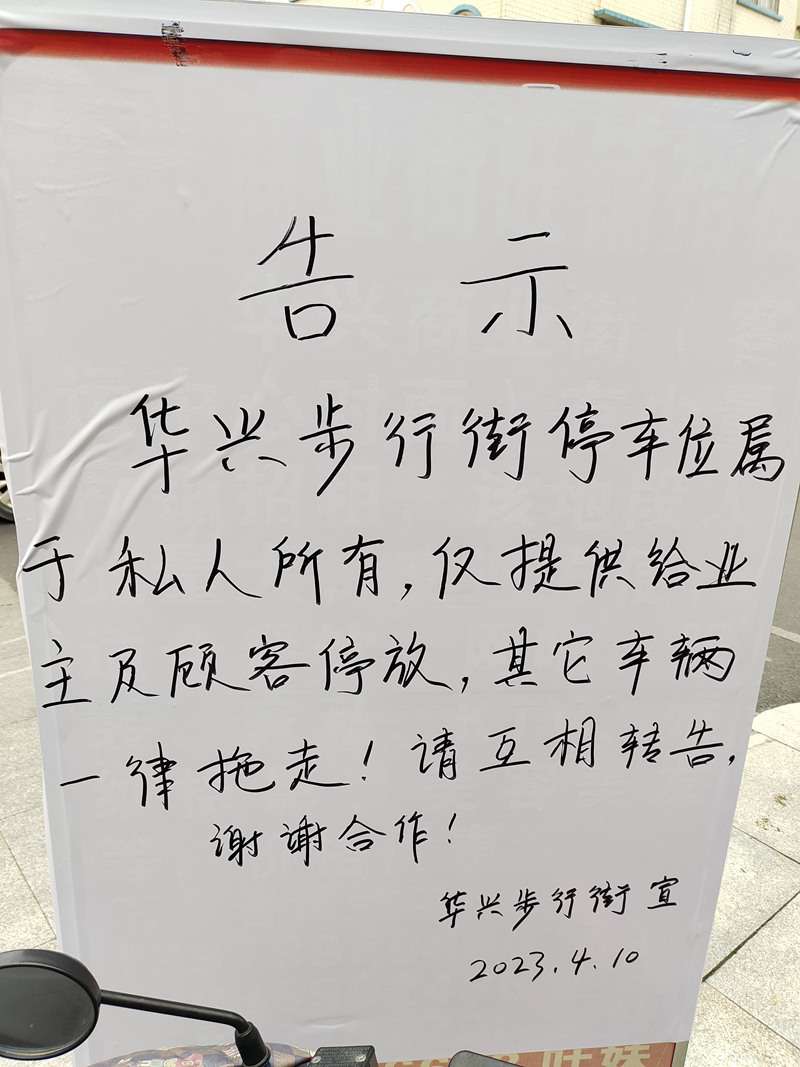 告示
华兴步行街停车位属
于私人所有,仅提供给业
主及顾客停放,其它车辆
一律拖走!请互相转告,
谢谢合作!
华兴步行街 宣
2023.4.10